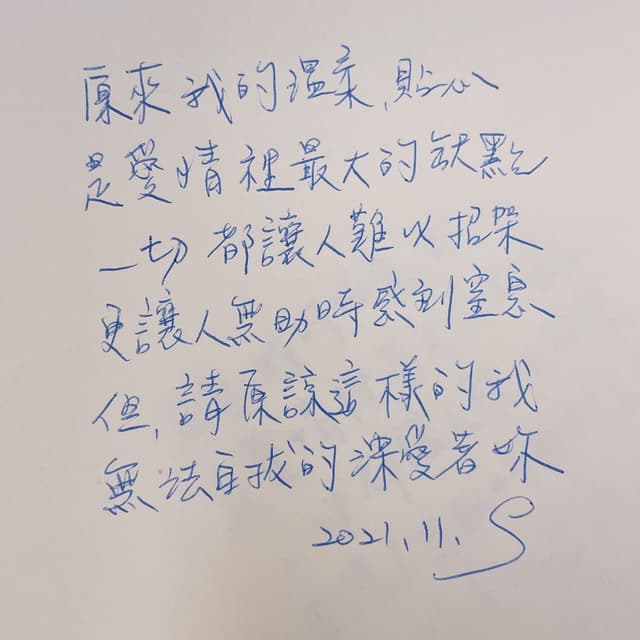 原來我的溫柔,貼心
是愛情裡最大的缺點
一切都讓人難以招架
更讓人無助時感到窒息
但,請原諒這樣的我
無法自拔的深愛著妳
2021.11. S